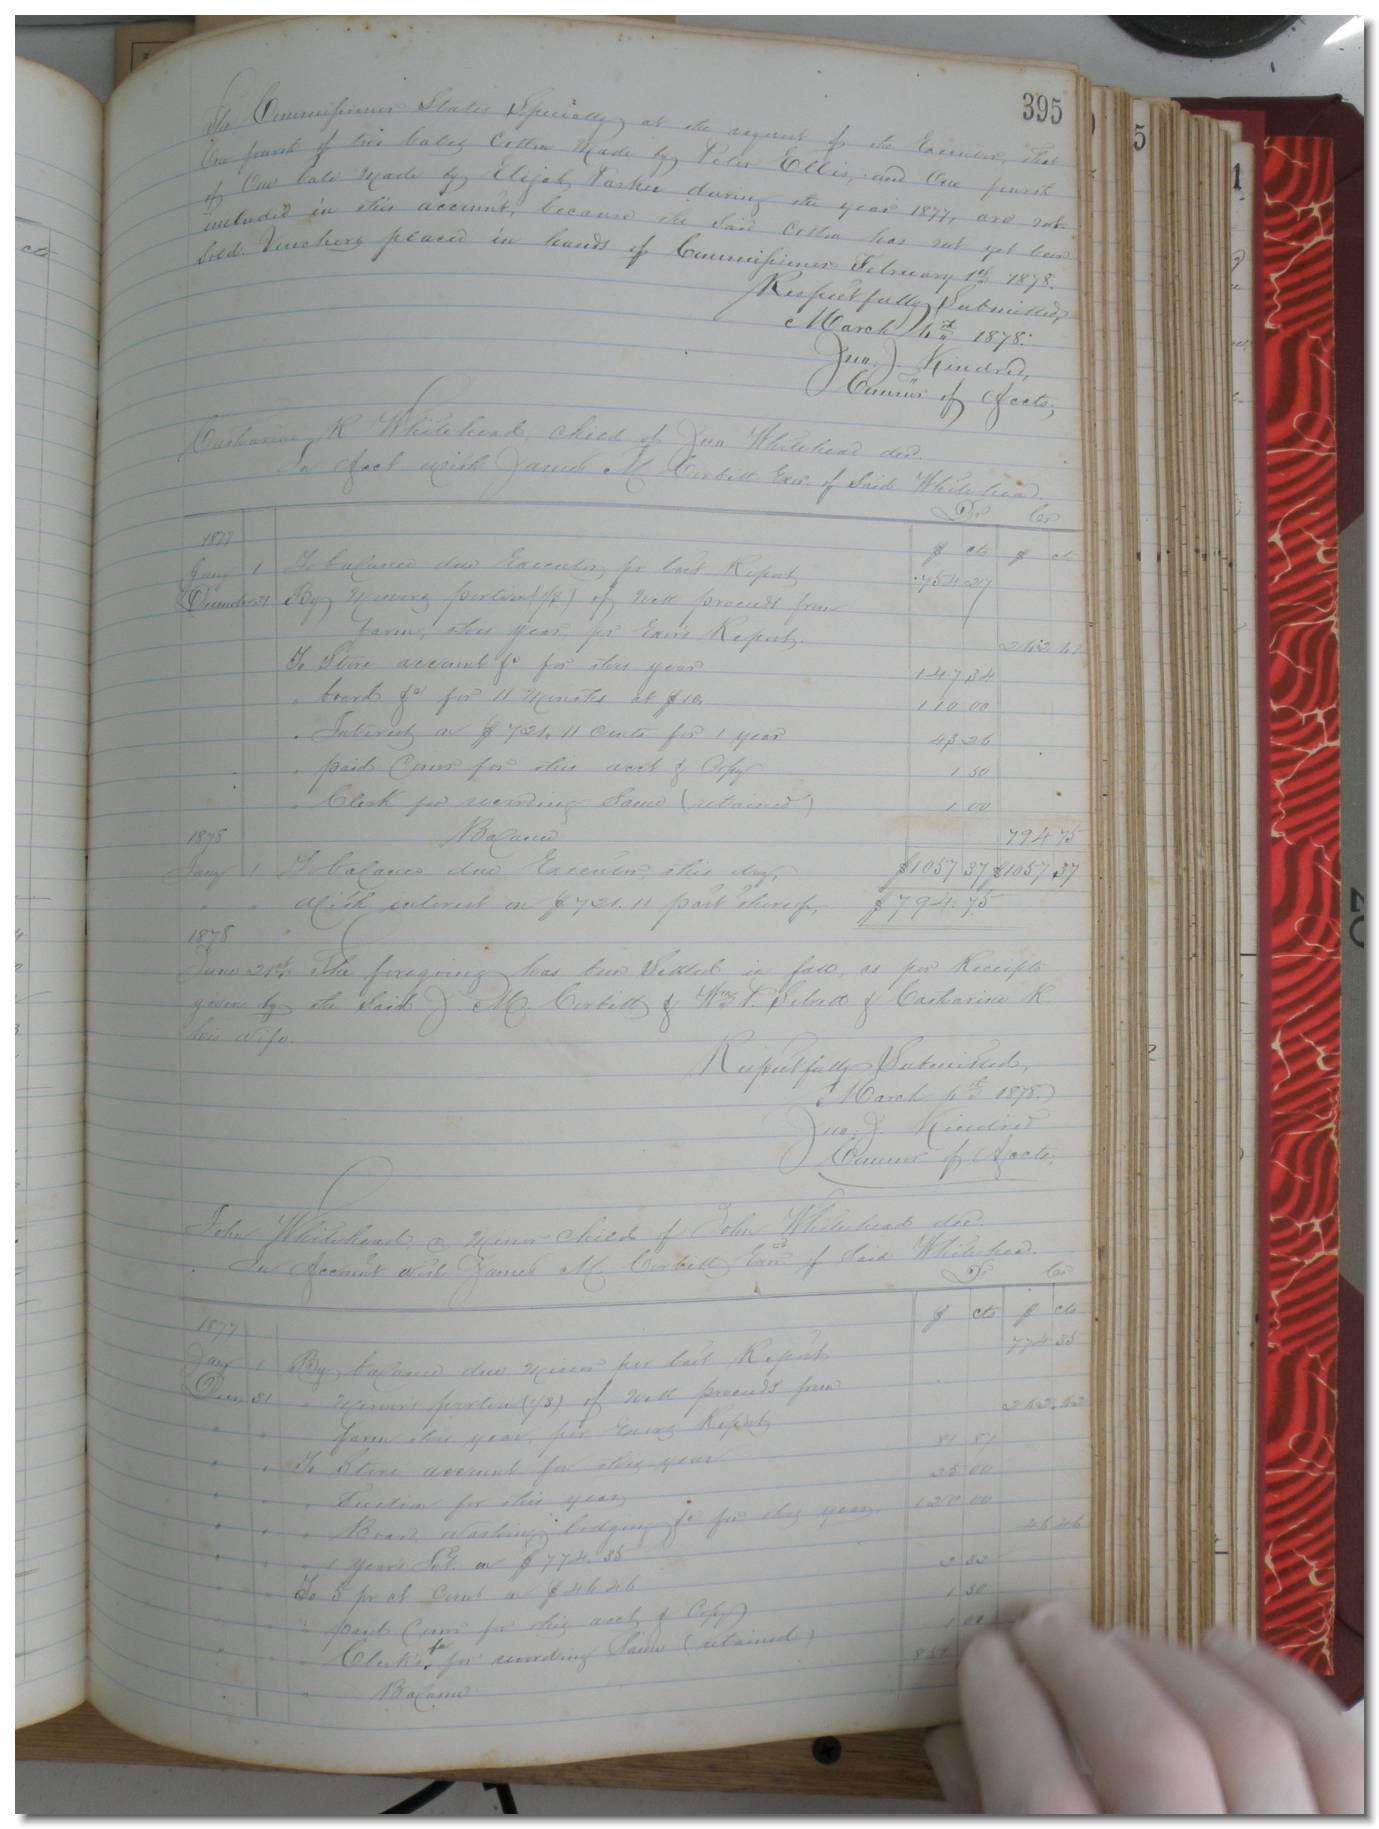 395
The Commissioner States Specially at the request of the Executor, that
One fourth of two bales Cotton Made by Peter Ellis, and One fourth
of One bale Made by Elijah Parker during the year 1877, are not
included in this account, because the Said Cotton has not yet been
Sold. Vouchers placed in hands of Commissioner February 1st 1878.
Respectfully Submitted,
March 4th 1878.
Jno. J. Kindred,
Commr of Accts,
Catharine K Whitehead, child of Jno Whitehead dec.
In Acct with James M Corbitt Exor. of Said Whitehead.
Dr Cr
1877 $ cts $ cts
Jany 1 To balance due Executor pr last Report, 754 27
December 31 By Minors portion (1/3) of nett proceeds from
farm, this year, pr Exors Report, 262 62
To Store account &c for this year 147 34
" board &c for 11 Months at $10. 110 00
" Interest on $721.11 cents for 1 year 43 26
" paid Comr for this acct & Copy 1 50
" Clerk for recording Same (retained) 1 00
1878 Balance 794 75
Jany 1 To balance due Executor this day, $1057 37 $1057 37
With interest on $721.11 part thereof, $794.75
1878
June 21st The foregoing has been Settled in full, as per Receipts
given by the Said J. M. Corbitt & Wm T. & Catharine K
his wife.
Respectfully Submitted,
March 4th 1878.
Jno. J. Kindred
Commr of Accts.
John Whitehead, a Minor child of John Whitehead dec.
In Account with James M Corbitt Exor of Said Whitehead.
Dr Cr
1877 $ cts $ cts
Jany 1 By balance due Minor per last Report 774 35
Decr 31 " Minors portion (1/3) of nett proceeds from
" " farm this year, per Exors Report 262.62
" " To Store account for this year 81 87
" " " Tuition for this year 25 00
" " " Board, washing, lodging &c for this year, 120 00
" " " 1 years Int. on $774.35 46 46
" " To 5 pr ct Coms on $46 46 2 32
" " " paid Comr for this acct & Copy 1 50
" " " Clerk's fee for recording Same (retained) 1 00
" Balance
cts
5
1